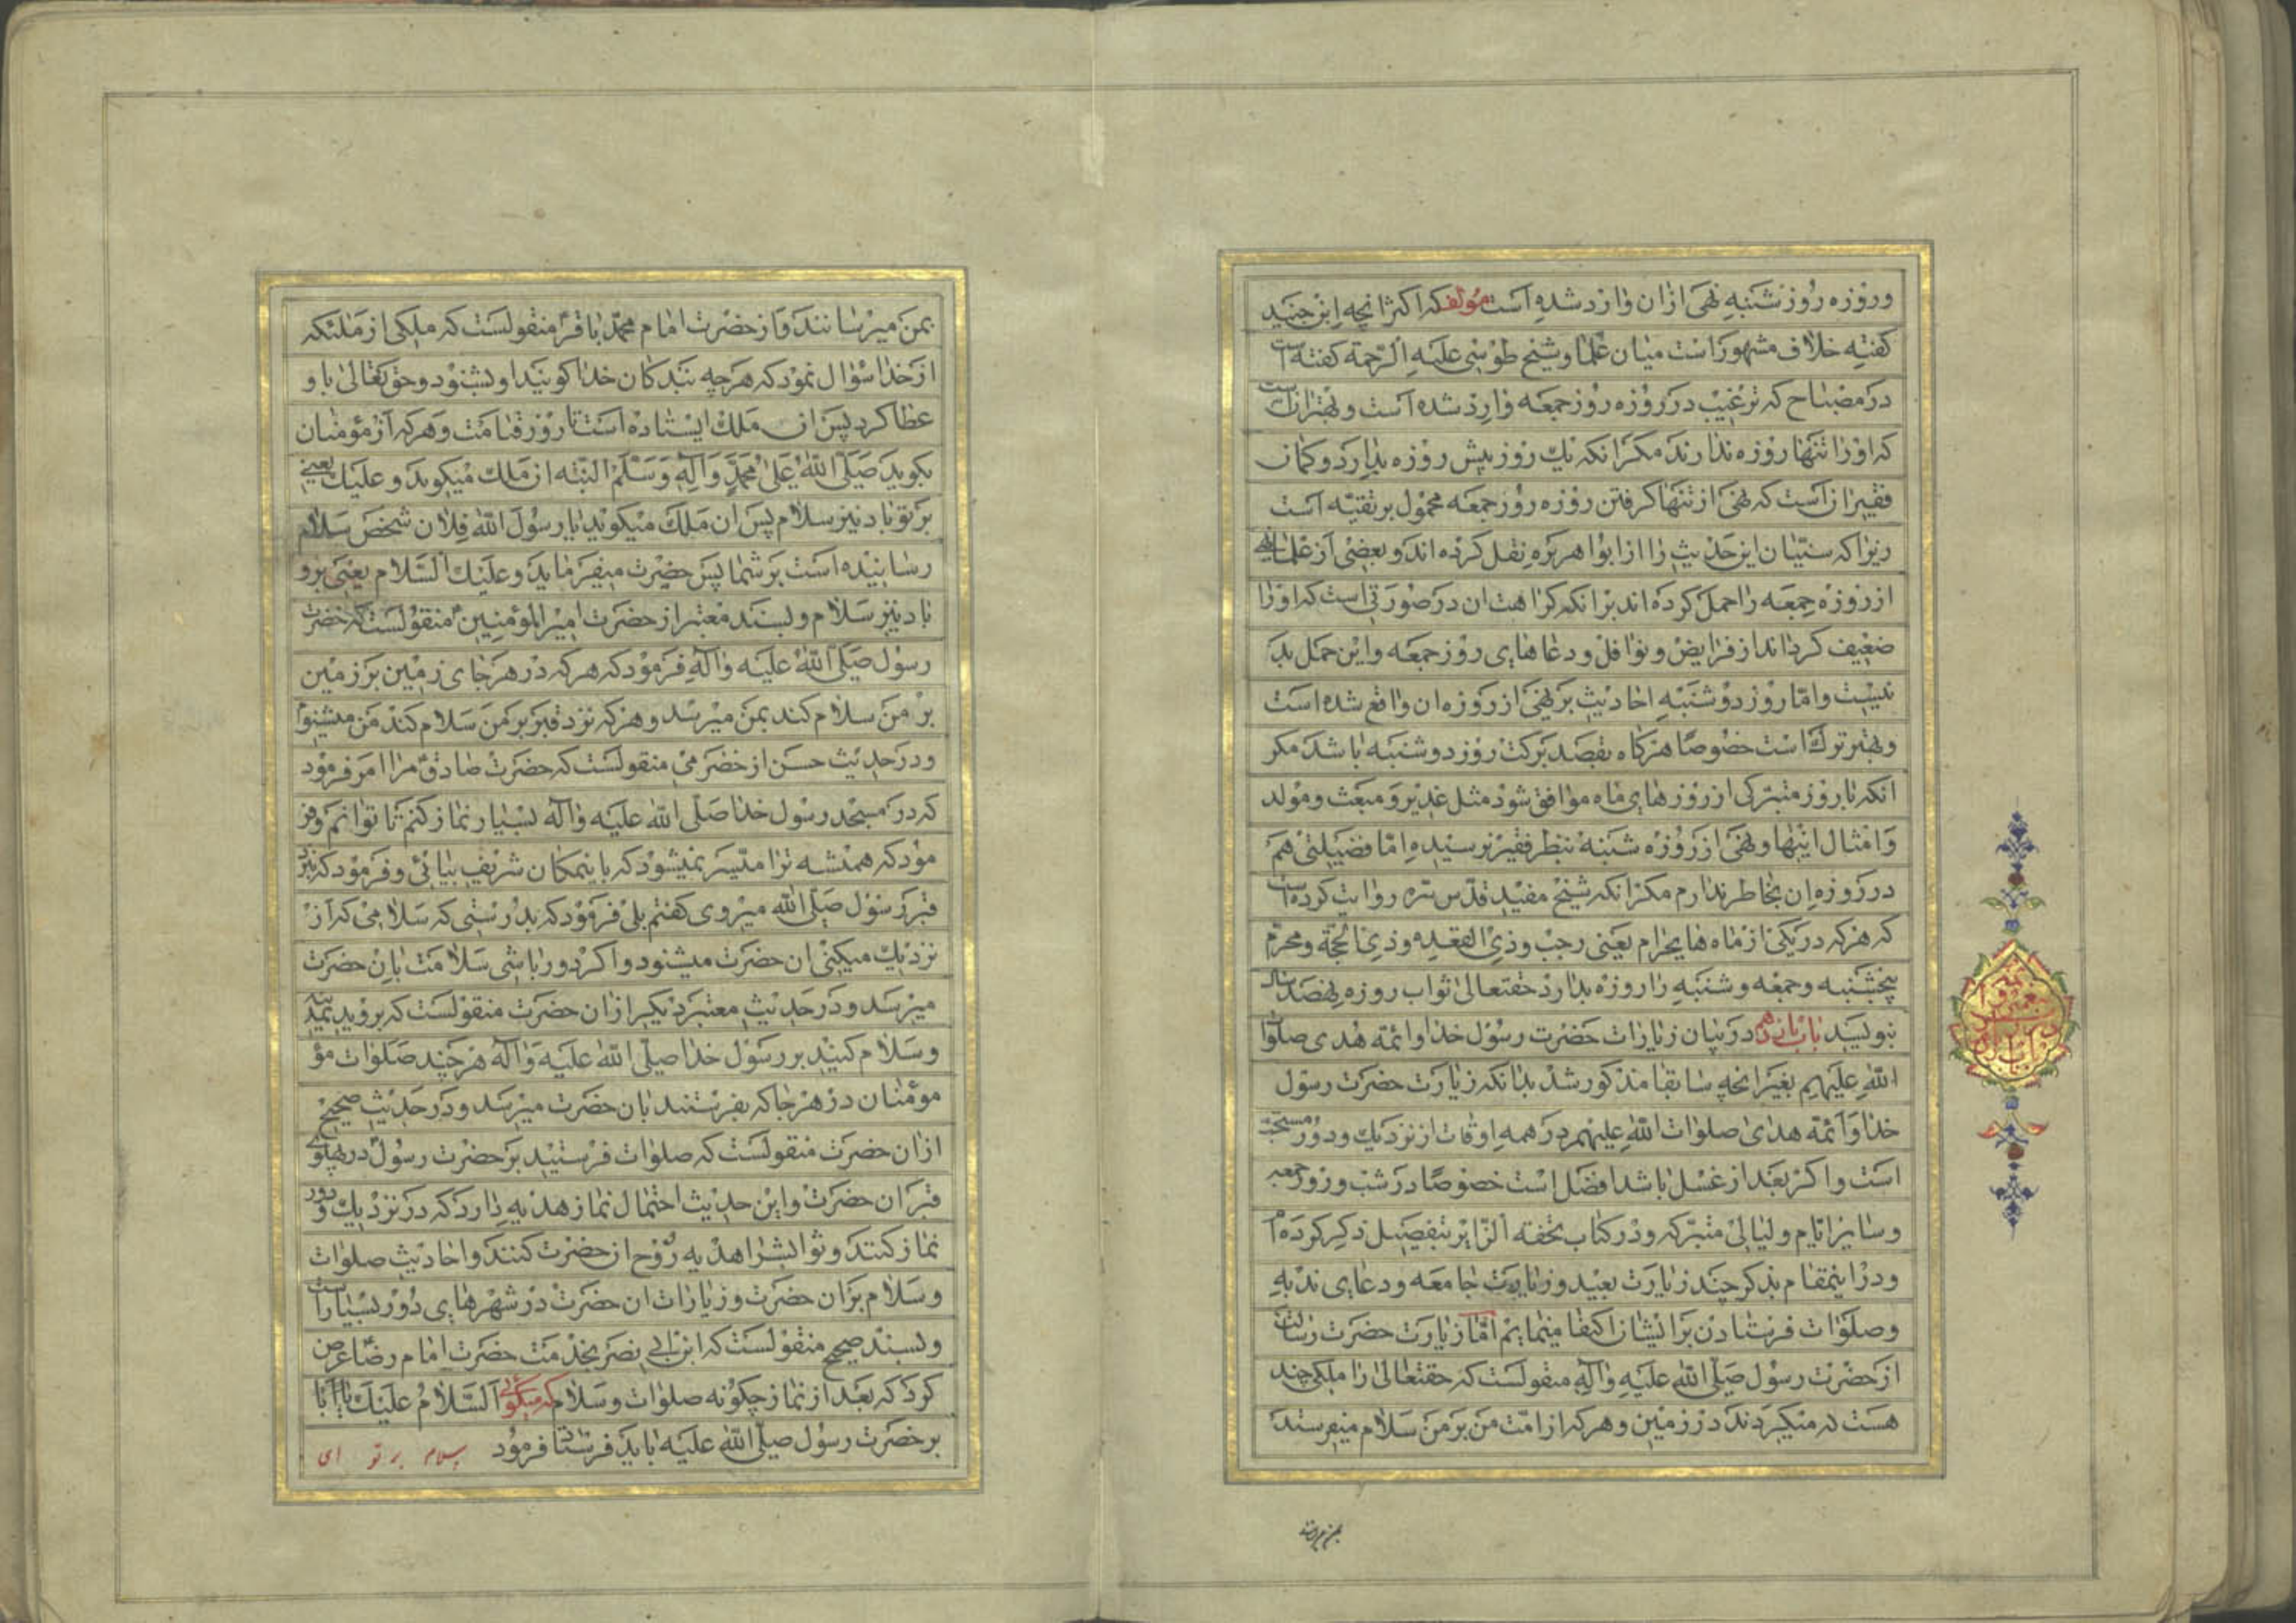 وروزه روز شنبه نهی ازان وارد شده است مؤلف که اکثر انچه ابن جنید
کفته خلاف مشهور است میان علما وشیخ طوسی علیه الرحمة کفته است
در مصباح که ترغیب در روزه روز جمعه وارد شده است وبهتر انست
که اورا تنها روزه ندارند مکر انکه یك روز پیش روزه بدارد وکمان
فقیر انست که نهی از تنها کرفتن روزه روز جمعه محمول بر تقیه است
زیرا که سنیان این حدیث را از ابو اهریره نقل کرده اند وبعضی از علما نهی
از روزه جمعه را حمل کرده اند بر انکه کراهت ان در صورتی است که اورا
ضعیف کرداند از فرایض ونوافل ودعاهای روز جمعه واین حمل بد
نیست واما روز دوشنبه احادیث بر نهی از روزه ان واقع شده است
وبهتر ترك است خصوصا هرکاه بقصد برکت روز دوشنبه باشد مکر
انکه با روز متبرکی از روزهای ماه موافق شود مثل غدیر ومبعث ومولد
وامثال اینها ونهی از روزه شنبه بنظر فقیر نرسیده اما فضیلتی هم
در روزه ان بخاطر ندارم مکر انکه شیخ مفید قدس سره روایت کرده است
که هر که در یکی از ماه های حرام یعنی رجب وذی القعده وذی الحجة ومحرم
پنجشنبه وجمعه وشنبه را روزه بدارد حقتعالی ثواب روزه نهصد سال
بنویسد باب یازدهم در بیان زیارات حضرت رسول خدا وائمه هدی صلوات
الله علیهم بغیر انچه سابقا مذکور شد بدانکه زیارت حضرت رسول
خدا وائمه هدای صلوات الله علیهم در همه اوقات از نزدیك ودور مستحب
است واکر بعد از غسل باشد افضل است خصوصا در شب وروز جمعه
وسایر ایام ولیالی متبرکه ودر کتاب تحفه الزایر بتفصیل ذکر کرده ام
ودر اینمقام بذکر چند زیارت بعید وزیارت جامعه ودعای ندبه
وصلوات فرستادن برایشان اکتفا مینمایم اما زیارت حضرت رسالت
از حضرت رسول صلی الله علیه واله منقولست که حقتعالی را ملکی چند
هست که میکردند در زمین وهر که از امت من بر من سلام میفرستد
بمن میرسانند
بمن میرسانند واز حضرت امام محمد باقر منقولست که ملکی از ملئکه
از خدا سؤال نمود که هر چه بندکان خدا کویند او بشنود وحق تعالی باو
عطا کرد پس ان ملك ایستاده است تا روز قیامت وهر که از مؤمنان
بکوید صلی الله علی محمد واله وسلم البته ان ملك میکوید وعلیك یعنی
بر تو باد نیز سلام پس ان ملك میکوید یا رسول الله فلان شخص سلام
رسانیده است بر شما پس حضرت میفرماید وعلیك السلام یعنی برو
باد نیز سلام وبسند معتبر از حضرت امیر المؤمنین منقولست که حضرت
رسول صلی الله علیه واله فرمود که هر که در هر جای زمین بر زمین
بر من سلام کند بمن میرسد وهر که نزد قبر بر من سلام کند من میشنوم
ودر حدیث حسن از حضرمی منقولست که حضرت صادق مرا امر فرمود
که در مسجد رسول خدا صلی الله علیه واله بسیار نماز کنم تا توانم وفر
مود که همیشه ترا میسر نمیشود که باینمکان شریف بیائی وفرمود که نزد
قبر رسول صلی الله میروی کفتم بلی فرمود که بدرستی که سلامی که از
نزدیك میکنی ان حضرت میشنود واکر دور باشی سلامت بان حضرت
میرسد ودر حدیث معتبر دیکر از ان حضرت منقولست که بروید بمدینه
وسلام کنید بر رسول خدا صلی الله علیه واله هر چند صلوات مؤ
مؤمنان در هر جا که بفرستند بان حضرت میرسد ودر حدیث صحیح
از ان حضرت منقولست که صلوات فرستید بر حضرت رسول در پهلوی
قبر ان حضرت واین حدیث احتمال نماز هدیه دارد که در نزدیك ودور
نماز کنند وثوابشرا هدیه روح ان حضرت کنند واحادیث صلوات
وسلام بر ان حضرت وزیارات ان حضرت در شهرهای دور بسیار است
وبسند صحیح منقولست که ابن ابی نصر بخدمت حضرت امام رضا عرض
کرد که بعد از نماز چکونه صلوات وسلام که میکوئی السلام علیك یا
بر حضرت رسول صلی الله علیه باید فرستاد فرمود سلام بر تو ای